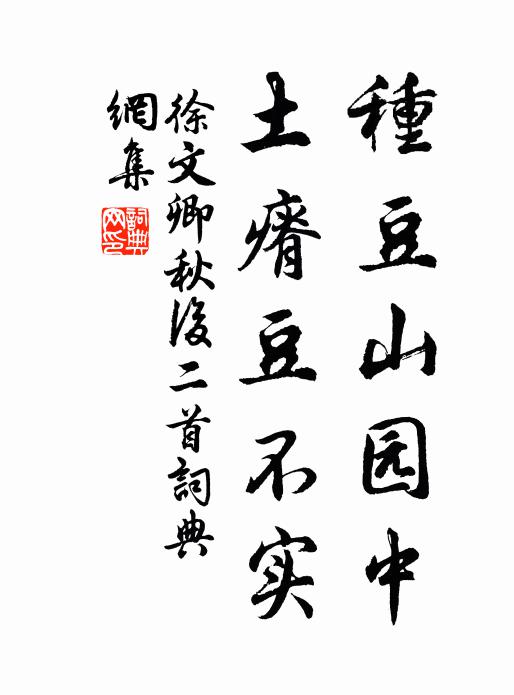 種豆山园中
土瘠豆不实
徐文卿秋後二首詞典
網集
詞典网印